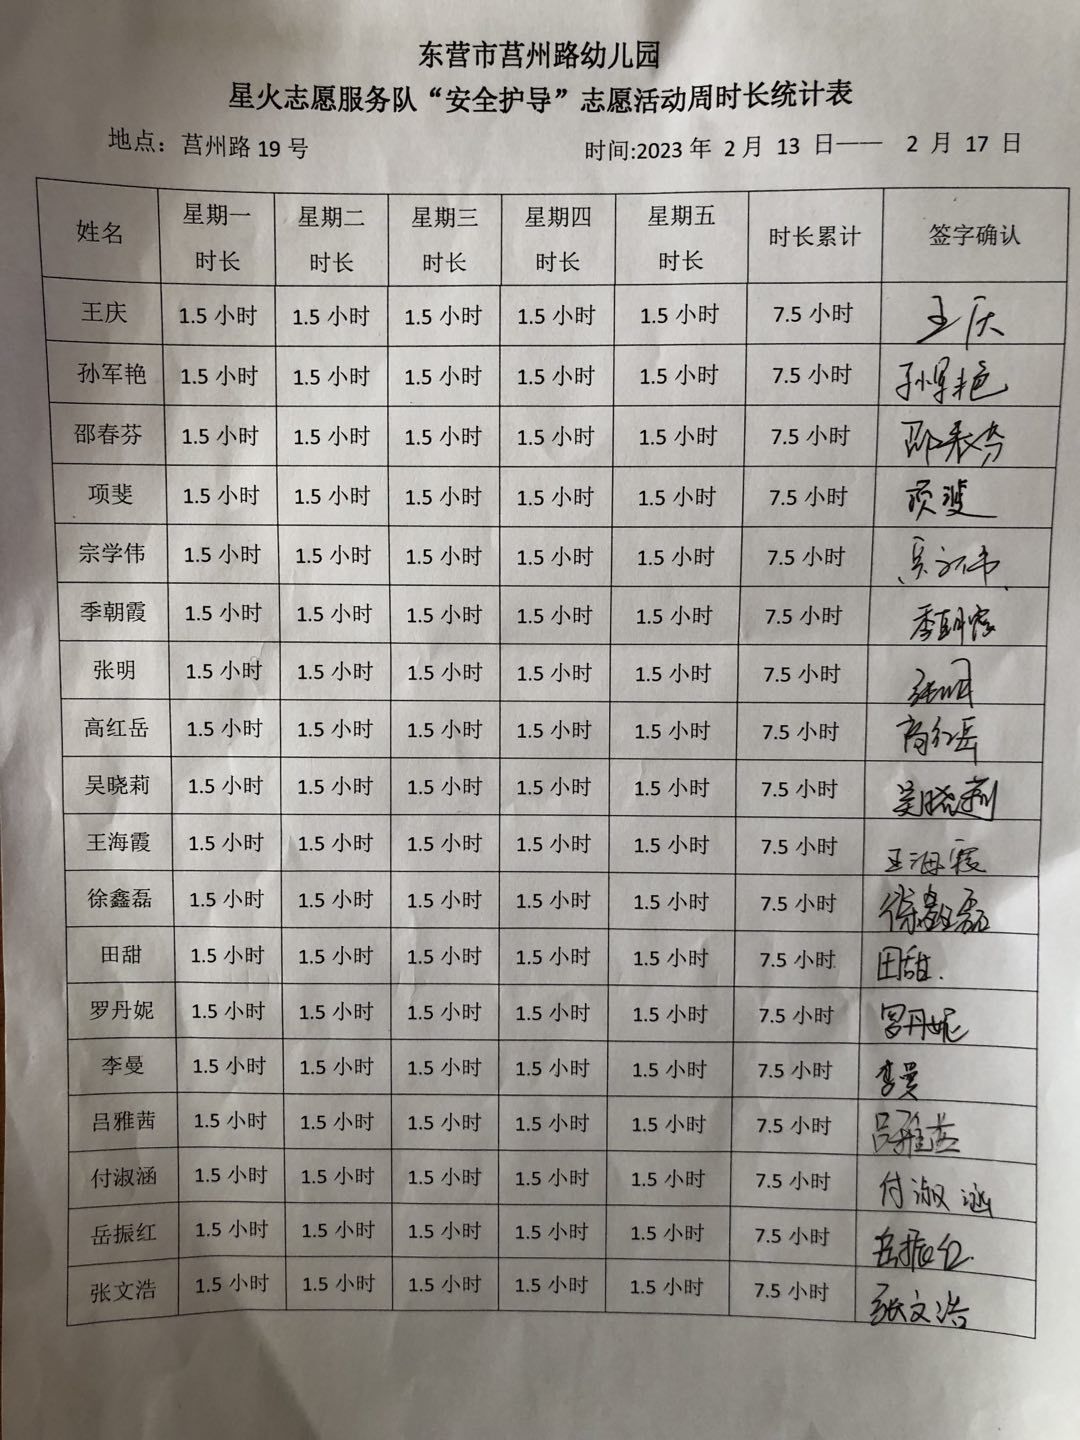 东营市莒州路幼儿园
星火志愿服务队“安全护导”志愿活动周时长统计表
地点：莒州路 19 号 时间:2023 年 2 月 13 日—— 2 月 17 日
姓名 星期一时长 星期二时长 星期三时长 星期四时长 星期五时长 时长累计 签字确认
王庆 1.5 小时 1.5 小时 1.5 小时 1.5 小时 1.5 小时 7.5 小时 王庆
孙军艳 1.5 小时 1.5 小时 1.5 小时 1.5 小时 1.5 小时 7.5 小时 孙军艳
邵春芬 1.5 小时 1.5 小时 1.5 小时 1.5 小时 1.5 小时 7.5 小时 邵春芬
项斐 1.5 小时 1.5 小时 1.5 小时 1.5 小时 1.5 小时 7.5 小时 项斐
宗学伟 1.5 小时 1.5 小时 1.5 小时 1.5 小时 1.5 小时 7.5 小时
季朝霞 1.5 小时 1.5 小时 1.5 小时 1.5 小时 1.5 小时 7.5 小时 季朝霞
张明 1.5 小时 1.5 小时 1.5 小时 1.5 小时 1.5 小时 7.5 小时 张明
高红岳 1.5 小时 1.5 小时 1.5 小时 1.5 小时 1.5 小时 7.5 小时 高红岳
吴晓莉 1.5 小时 1.5 小时 1.5 小时 1.5 小时 1.5 小时 7.5 小时 吴晓莉
王海霞 1.5 小时 1.5 小时 1.5 小时 1.5 小时 1.5 小时 7.5 小时 王海霞
徐鑫磊 1.5 小时 1.5 小时 1.5 小时 1.5 小时 1.5 小时 7.5 小时 徐鑫磊
田甜 1.5 小时 1.5 小时 1.5 小时 1.5 小时 1.5 小时 7.5 小时 田甜.
罗丹妮 1.5 小时 1.5 小时 1.5 小时 1.5 小时 1.5 小时 7.5 小时 罗丹妮
李曼 1.5 小时 1.5 小时 1.5 小时 1.5 小时 1.5 小时 7.5 小时 李曼
吕雅茜 1.5 小时 1.5 小时 1.5 小时 1.5 小时 1.5 小时 7.5 小时 吕雅茜
付淑涵 1.5 小时 1.5 小时 1.5 小时 1.5 小时 1.5 小时 7.5 小时 付淑涵
岳振红 1.5 小时 1.5 小时 1.5 小时 1.5 小时 1.5 小时 7.5 小时 岳振红
张文浩 1.5 小时 1.5 小时 1.5 小时 1.5 小时 1.5 小时 7.5 小时 张文浩